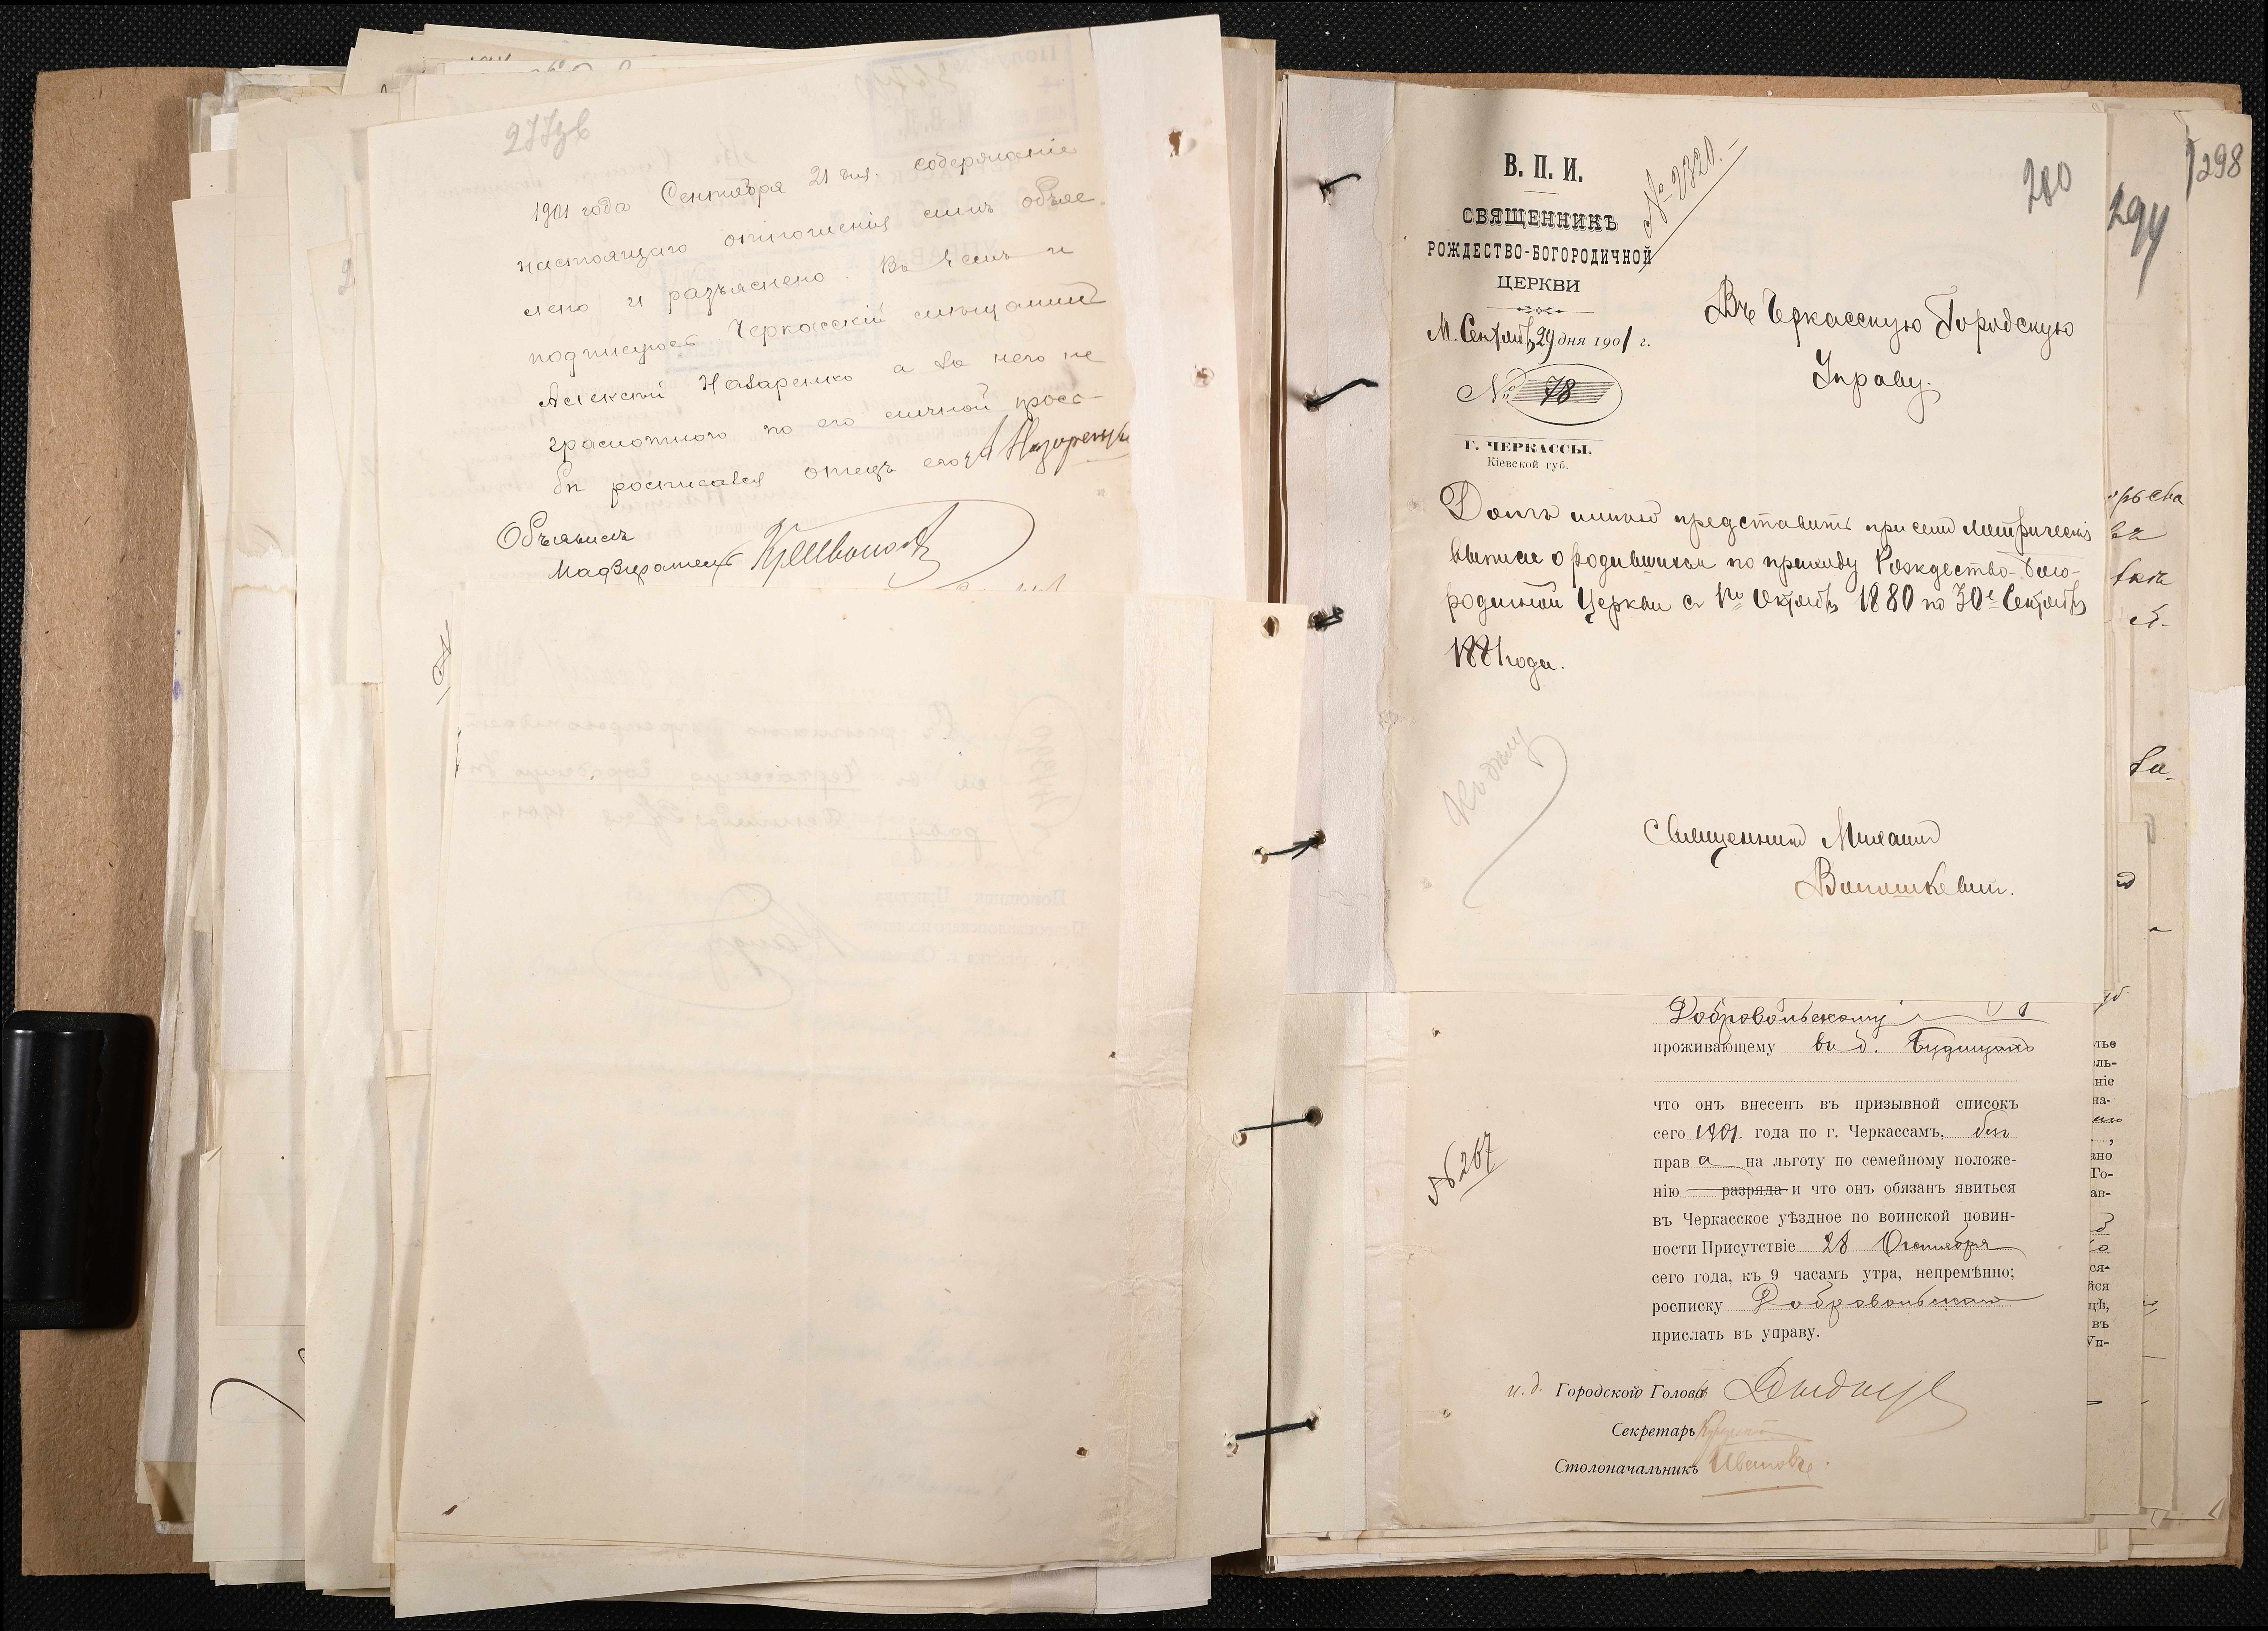 277зв
1901 года Сентября 21 дня. содержаніе
настоящаго отношенія мнѣ объяв
лено и разъяснено. Въ чемъ и
подписуюсь Черкасскій мѣщанинъ
Алексѣй Назаренко а за него не
грамотнаго по его личной прось-
бѣ росписался отецъ его А Назаренко
Объявилъ
Надзиратель
В. П. И.
СВЯЩЕННИКЪ
РОЖДЕСТВО-БОГОРОДИЧНОЙ
ЦЕРКВИ
М. Сентябр 29 дня 1901 г.
№ 78
Г. ЧЕРКАССЫ.
Кіевской губ.
№ 2320.-
280
Въ Черкасскую Городскую
Управу.
Долгъ имѣю представить при семъ метрическія
выписи о родившихся по приходу Рождество-Бого-
родичной Церкви съ 1го Октября 1880 по 30е Сентября
1881 года.
Къ дѣлу
Священникъ Михаилъ
294
298
№ 267
Добровольскому
проживающему въ д. Будищахъ
что онъ внесенъ въ призывной списокъ
сего 1901 года по г. Черкассамъ, безъ
права на льготу по семейному положе-
нію разряда и что онъ обязанъ явиться
въ Черкасское уѣздное по воинской повин-
ности Присутствіе 28 Октября
сего года, къ 9 часамъ утра, непремѣнно;
росписку Добровольскаго
прислать въ управу.
и. д. Городского Головы
Секретарь
Столоначальникъ